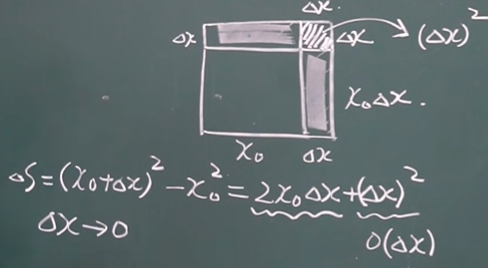 Δx.
Δx Δx (Δx)²
x₀Δx.
x₀ Δx
ΔS=(x₀+Δx)²-x₀²=2x₀Δx+(Δx)²
Δx→0 0(Δx)